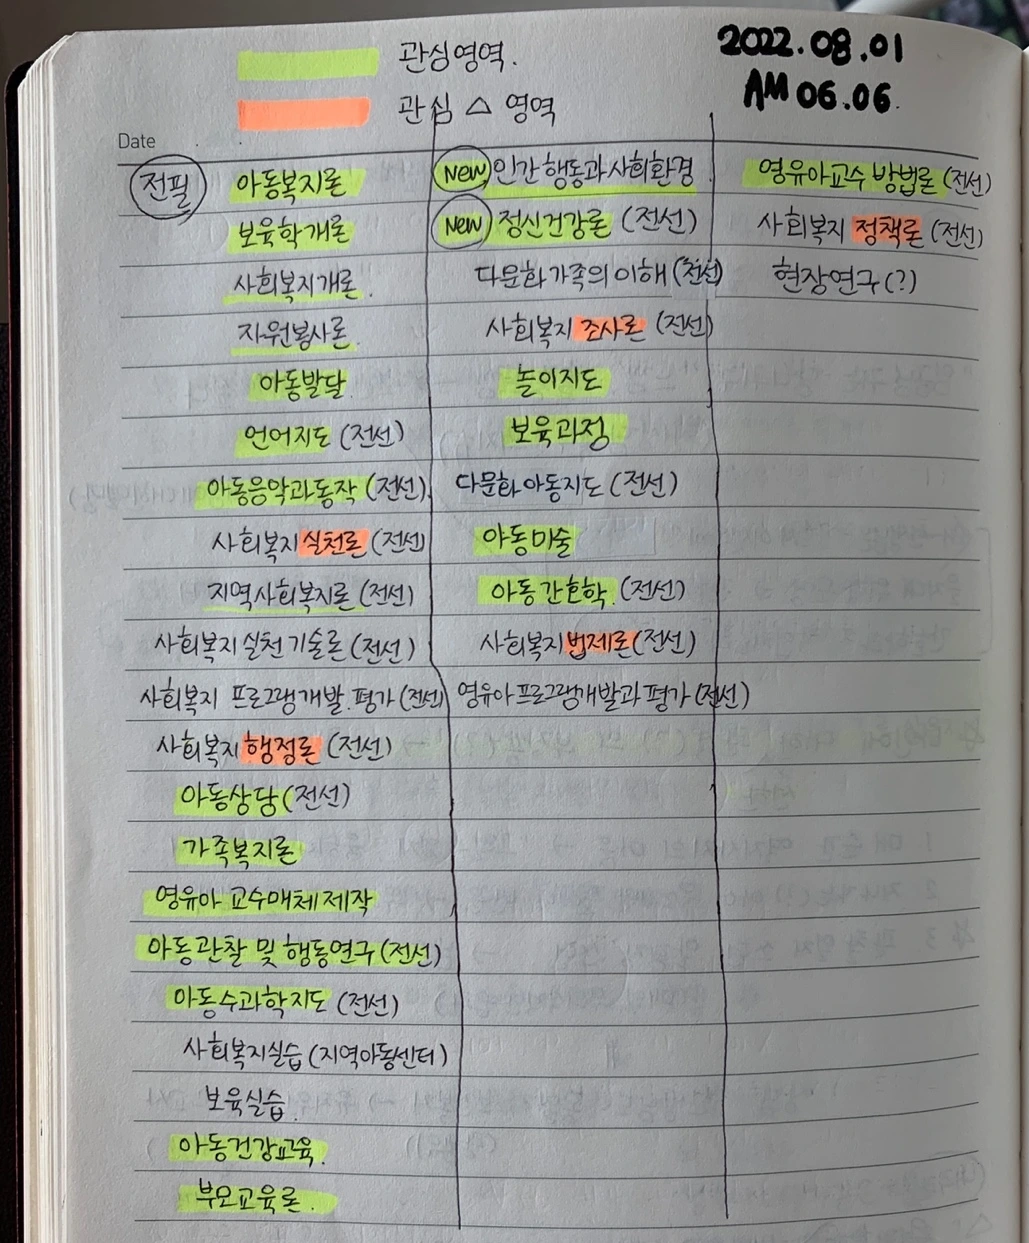 관심영역.
2022.08.01
관심 △ 영역
AM 06.06.
Date
전필
아동복지론
보육학개론
사회복지개론.
자원봉사론.
아동발달
언어지도 (전선)
아동음악과동작 (전선)
사회복지실천론 (전선)
지역사회복지론 (전선)
사회복지실천기술론 (전선)
사회복지 프로그램개발.평가 (전선)
사회복지행정론 (전선)
아동상담 (전선)
가족복지론
영유아 교수매체 제작
아동관찰 및 행동연구 (전선)
아동수과학지도 (전선)
사회복지실습 (지역아동센터)
보육실습
아동건강교육.
부모교육론.
New 인간행동과사회환경
New 정신건강론 (전선)
다문화가족의 이해 (전선)
사회복지 조사론 (전선)
놀이지도
보육과정
다문화아동지도 (전선)
아동미술
아동간호학 (전선)
사회복지법제론 (전선)
영유아프로그램개발과 평가 (전선)
영유아교수 방법론 (전선)
사회복지 정책론 (전선)
현장연구 (?)